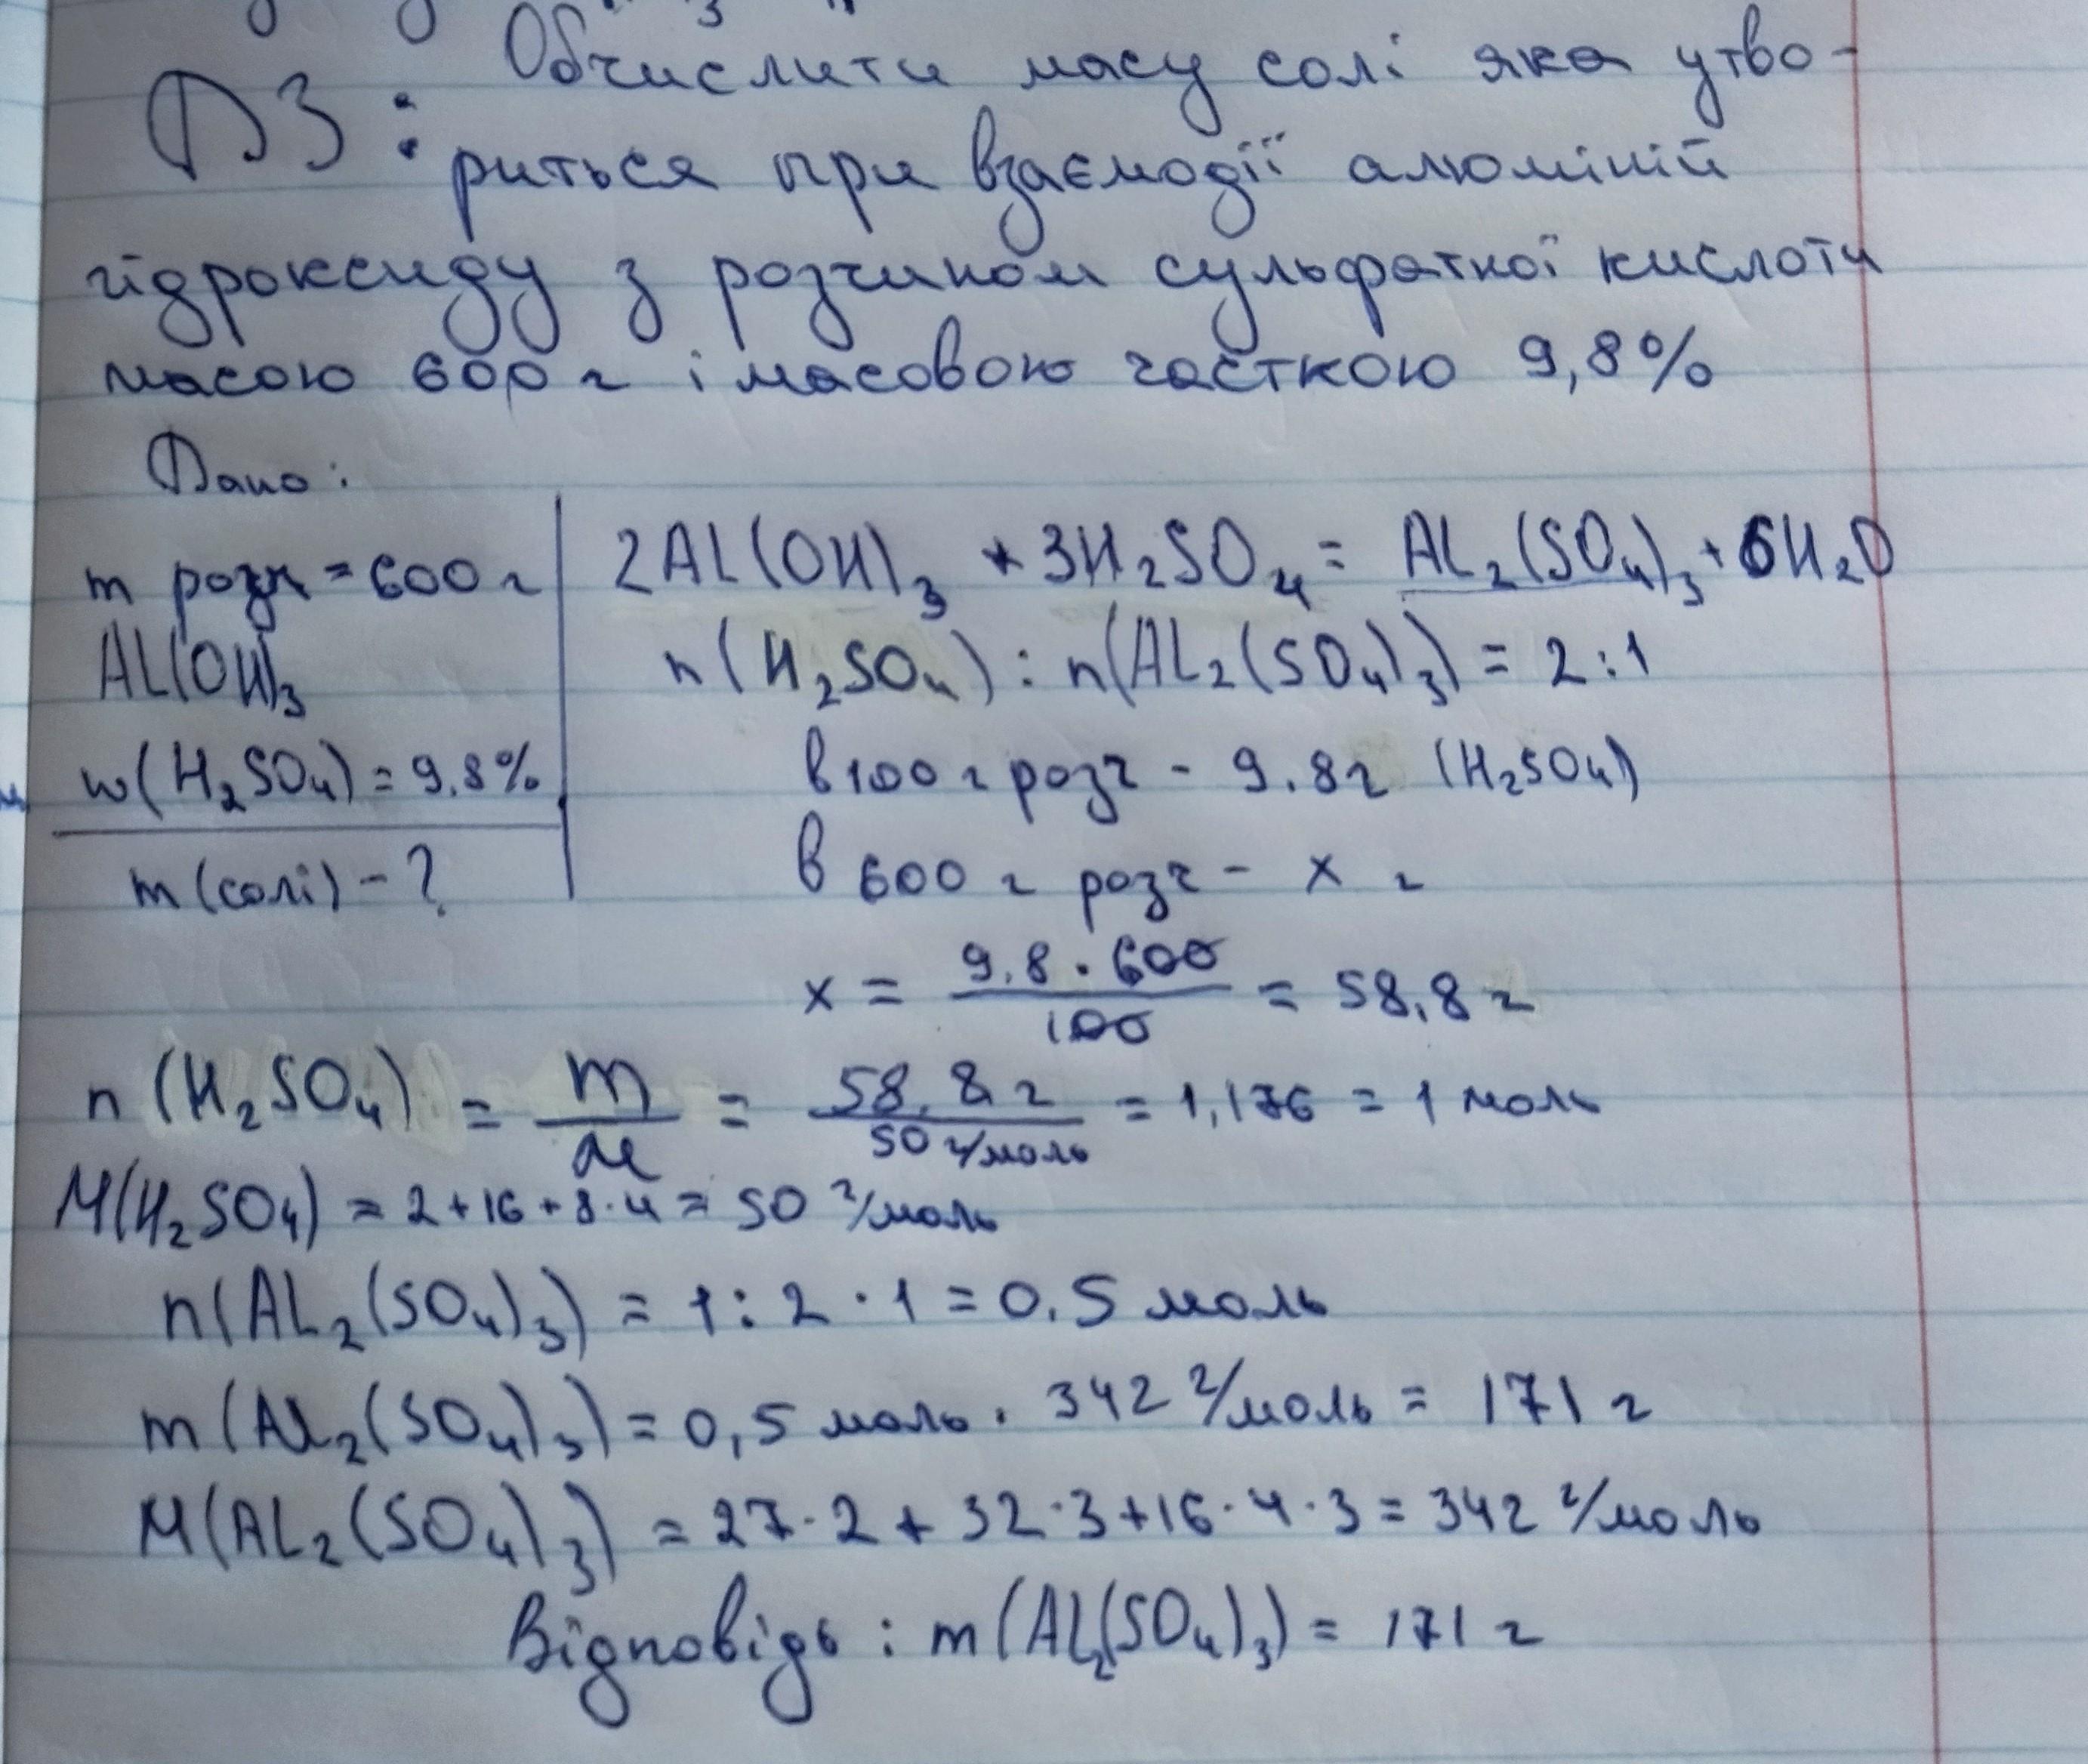 Обчислити масу солі яка утво-
ДЗ: риться при взаємодії алюміній
гідроксиду з розчином сульфатної кислоти
масою 600 г і масовою часткою 9,8%
Дано:
m розч = 600 г
AL(OH)3
w(H2SO4) = 9.8%
m(солі) - ?
2AL(OH)3 + 3H2SO4 = AL2(SO4)3 + 6H2O
n(H2SO4) : n(AL2(SO4)3) = 2:1
в 100 г розч - 9.8 г (H2SO4)
в 600 г розч - x г
x = 9.8 · 600 / 100 = 58,8 г
n(H2SO4) = m / M = 58,8 г / 50 г/моль = 1,176 = 1 моль
M(H2SO4) = 2+16+8·4 = 50 г/моль
n(AL2(SO4)3) = 1:2·1 = 0.5 моль
m(AL2(SO4)3) = 0,5 моль · 342 г/моль = 171 г
M(AL2(SO4)3) = 27·2+32·3+16·4·3 = 342 г/моль
Відповідь: m(AL2(SO4)3) = 171 г